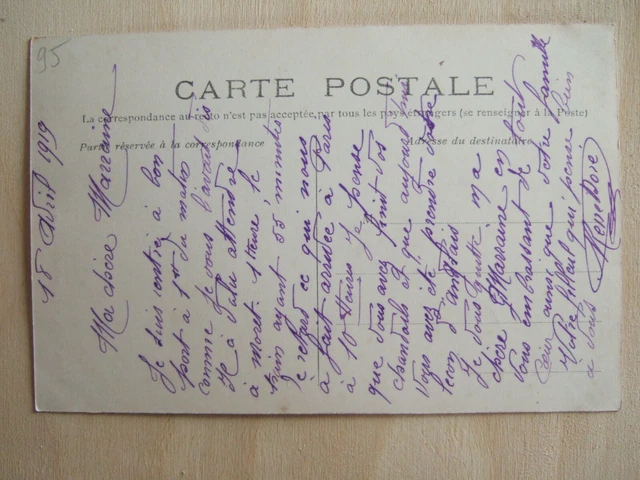 95
CARTE POSTALE
La correspondance au recto n'est pas acceptée par tous les pays étrangers (se renseigner à la Poste)
Partie réservée à la correspondance
Adresse du destinataire
18 Avril 1919
Ma chère Marraine
Je suis rentré à bon
port à 1 du matin
comme je vous l'avait dis
Il a falu attendre
à 1 heure, le
train ayant 55 minutes
de ce qui nous
a fait arrivée à Paris
à 10 Heures Je pense
que vous avez finit vos
chandails et que aujourd'hui
vous avez été prendre votre
leçon d'anglais
Je vous quitte ma
chère Marraine en
vous embrassant de tout
cœur ainsi que votre famille
Votre filleul qui pense bien
à vous